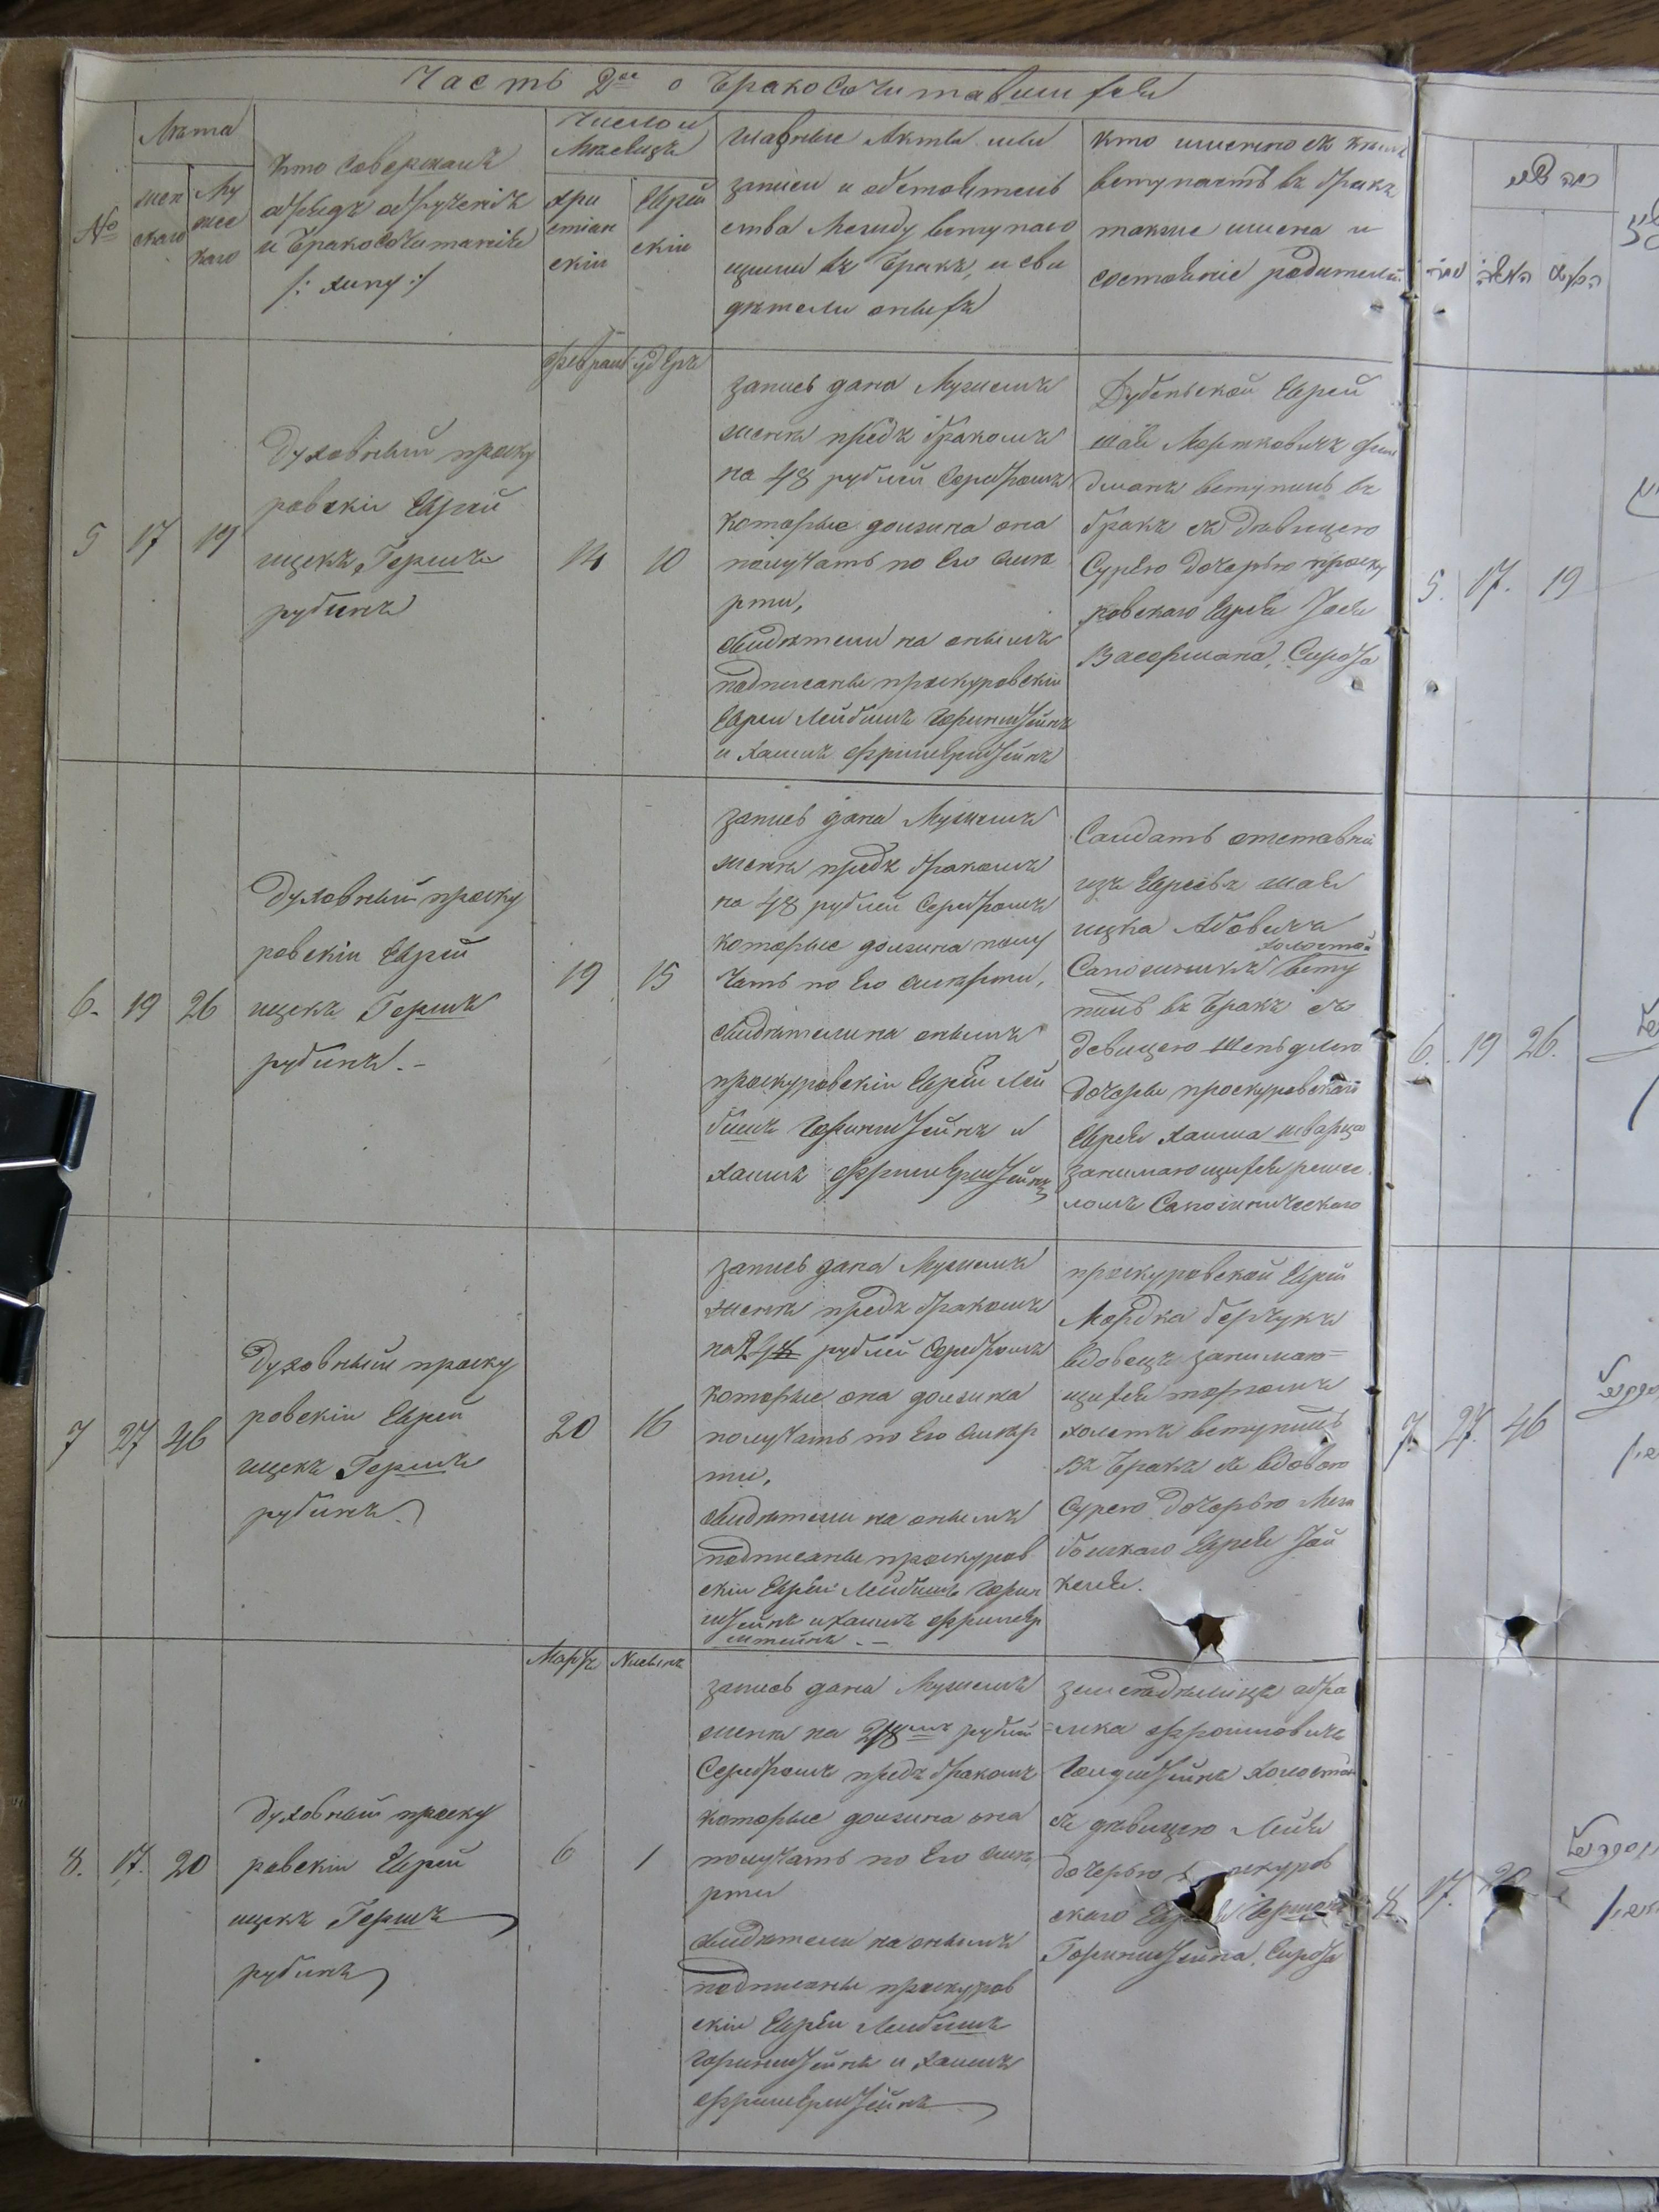 Часть 2ая о Бракосочитавшихся
№
Лѣта
жен
скаго
Му
жес
каго
кто совершалъ
обрядъ обрученія
и Бракосочитанія
/: хипу :/
Число и
Мѣсяцъ
хри
стіан
скій
Еврей
скій
Главные Акты или
записи и обстоятель
ства Между вступаю
щими въ Бракъ, и сви
дѣтели оныхъ
кто именно съ кѣмъ
вступаетъ въ бракъ
также имена и
состояніе родителей
февраль
5
17
19
Духовный проску
ровскій Еврей
ицекъ Гершъ
рубинъ
14
10
запись дана Мужемъ
женѣ предъ бракомъ
на 48 рублей Серебромъ
которые должна она
получать по Его смѣ
рти,
свидѣтели на онымъ
подписаны проскуровскіи
Евреи Лейбишъ Горинштейнъ
и Хаимъ
Дубенской Еврей
Мортковичъ
вступилъ въ
бракъ съ Дѣвицею
Сурѣю дочерью проску
ровскаго Еврея
Васермана, Сирота
6.
19
26
Духовный проску
ровскіи Еврей
ицекъ Гершъ
рубинъ. -
19
15
запись дана Мужемъ
женѣ предъ бракомъ
на 48 рублей Серебромъ
которые должна полу
чать по Его смѣрти,
свидѣтели на онымъ
проскуровскіи Евреи Лей
бишъ Горинштейнъ и
Хаимъ
Салдатъ отставной
изъ Евреевъ
ицка Абовича
холостой
Сапожникъ всту
пилъ въ Бракъ съ
девицею Шендлею
дочерью проскуровскаго
Еврея Хаима Шварца
занимающихся ремес
ломъ Сапожническаго
7
27
46
Духовный проску
ровскіи Еврей
ицекъ Гершъ
рубинъ
20
16
запись дана Мужемъ
женѣ предъ бракомъ
на рублей Серебромъ
которые она должна
получать по Его смѣр
ти,
свидѣтели на онымъ
подписаны проскуров
скіи Евреи Лейбишъ Горин
штейнъ и Хаимъ
проскуровской Еврей
Мордка Берчукъ
вдовецъ занимаю=
щихся торгомъ
вступилъ
въ Бракъ съ вдовою
Сурею дочерью Меж
божскаго Еврея
Мартъ
Нисынъ
8.
17.
20
Духовный проску
ровскіи Еврей
ицекъ Гершъ
рубинъ
6
1
запись дана Мужемъ
женѣ на рублей
Серебромъ предъ бракомъ
которые должна она
получать по Его смѣ
рти
свидѣтели на онымъ
подписаны проскуров
скіи Евреи Лейбишъ
Горинштейнъ и Хаимъ
земледѣлицъ абра
мка Фроимовичъ
Голдштейнъ холостой
съ дѣвицею Лейя
дочерью
скаго
Горинштейна, Сирота
5.
17.
19
6.
19
26.
7.
27.
46
8.
17.